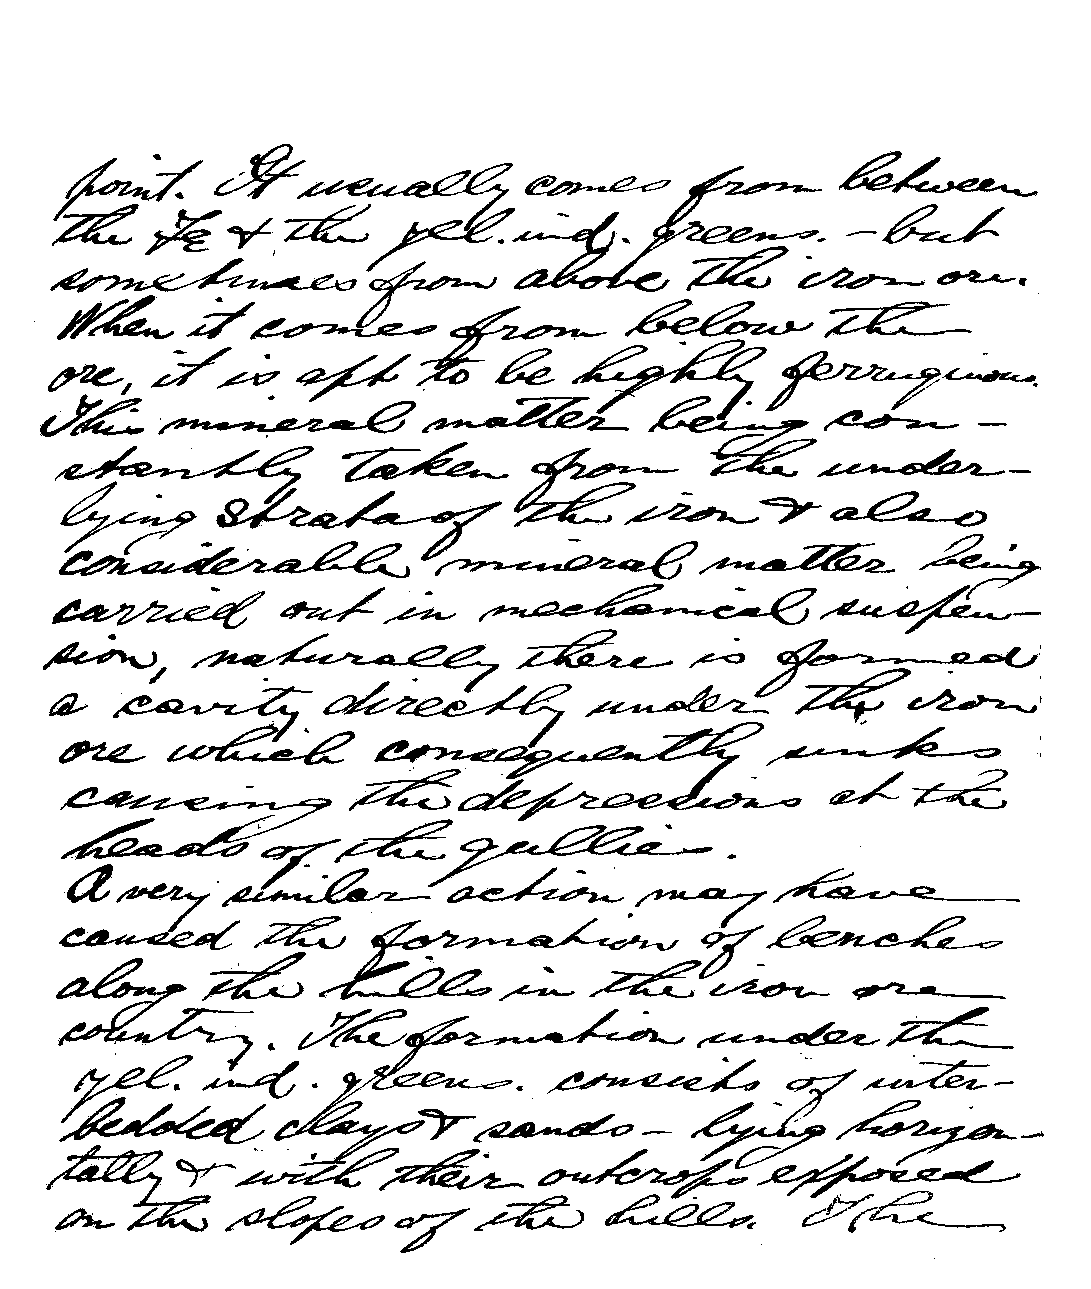 point. It usually comes from between
the Fe & the yel. ind. greens. - but
sometimes from above the iron ore.
When it comes from below the
ore, it is apt to be highly ferruginous.
This mineral matter being con-
stantly taken from the under-
lying strata of the iron & also
considerable mineral matter being
carried out in mechanical suspen-
sion, naturally there is formed
a cavity directly under the iron
ore which consequently sinks
causing the depressions at the
heads of the gullies.
A very similar action may have
caused the formation of benches
along the hills in the iron ore
country. The formation under the
yel. ind. greens. consists of inter-
bedded clays & sands - lying horizon-
tally & with their outcrops exposed
on the slopes of the hills. The